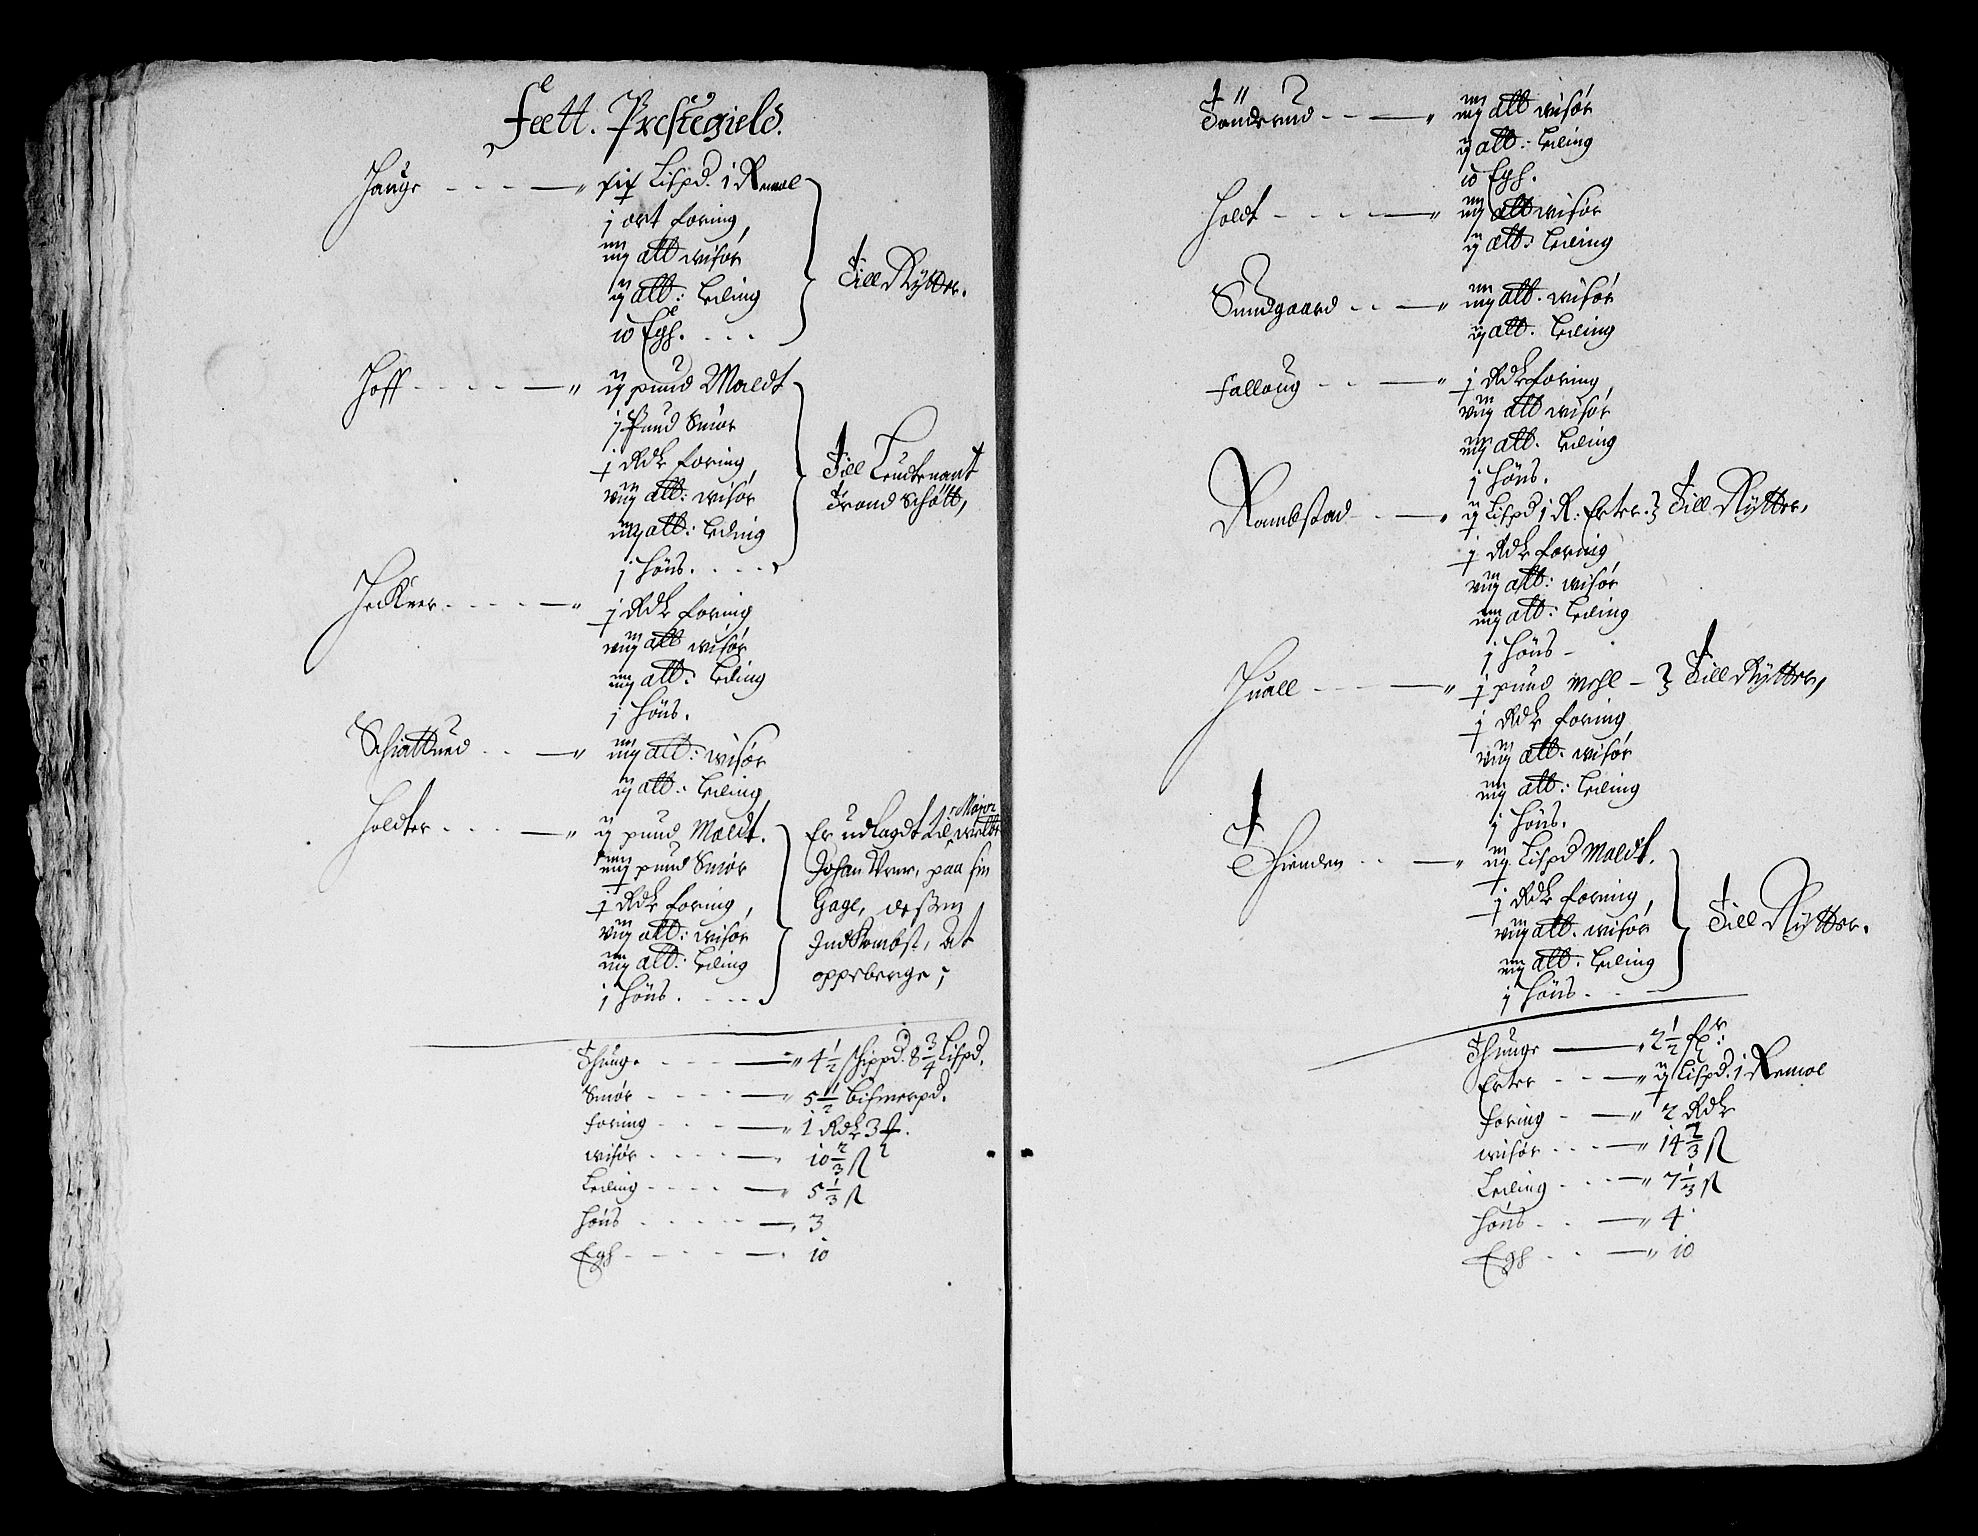 Feett. Prestegield.
Hauge - - - — " Lispd. i Remæl
j ort foring,
iiij alb wisør
ij alb: Leding
10 Egh. - - -
Till Rÿtter.
Hoff - - - — " ij pund Maldt
j Pund Smør
j Rdr foring,
viij alb: wisør
iiij alb: Leding
j Høns. - - -
Till Leudtenant
Trond Schøtt,
j Rdr foring
viij alb wisør
iiij alb: Leding
j Høns.
- - — " iiij alb: wisør
ij alb: Leding
Holdter - - - — " ij pund Maldt.
pund Smør
j Rdr foring,
viij alb: wisør
iiij alb: Leding
j Høns. - - -
Er udlagdt til Major
Johan paa sin
Gage, dessen
Indkombst, at
oppeberge;
Thunge - - - — " 4 1/2 schippd. 8 3/4 Lispd.
Smør - - - — " 5 1/2 bismerpd.
foring - - - — " 1 Rdr 3
wisør - - - — " 10 2/3 ß
Leding - - - — " 5 1/3 ß
Høns - - - — " 3
Egh - - - — " 10
Tönderud - - — " iiij alb wisør
ij alb: Leding
10 Egh.
Holdt - - - — " iiij alb wisør
ij alb: Leding
Sundgaard - - — " iiij alb. wisør
ij alb. Leding
Falloug - - — " j Rdr foring,
viij alb wisør
iiij alb. Leding
j Høns.
Rambstad - - — " ij Lispd j R: Erter. } Till Rÿtter,
j Rdr foring
viij alb: wisør
iiij alb: Leding
j Høns -
Huall - - - — " j pund Mehl - } Till Rÿtter,
j Rdr foring
viij alb. wisør
iiij alb: Leding
j Høns.
Thienden - - — " iij Lispd Maldt.
j Rdr foring,
viij alb. wisør
iiij alb: Leding
j Høns. - -
Till Rÿtter.
Thunge — " 2 1/2
Erter - - — " ij Lispd. j Remæl
foring - — " 2 Rdr
wisør - - - — " 14 2/3 ß
Leding - - - — " 7 1/3 ß
Høns - - — " 4
Egh - - — " 10